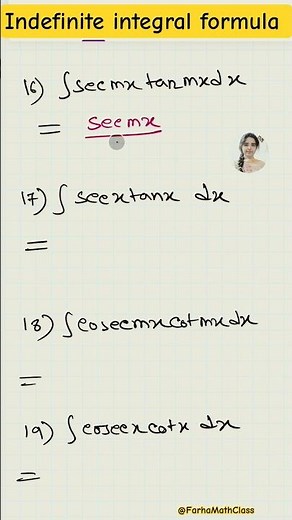 Indefinite integral formula
16) ∫secmx tanmxdx
= secmx
17) ∫secxtanx dx
=
18) ∫cosecmxcotmxdx
=
19) ∫cosecxcotx dx
=
@FarhaMathClass